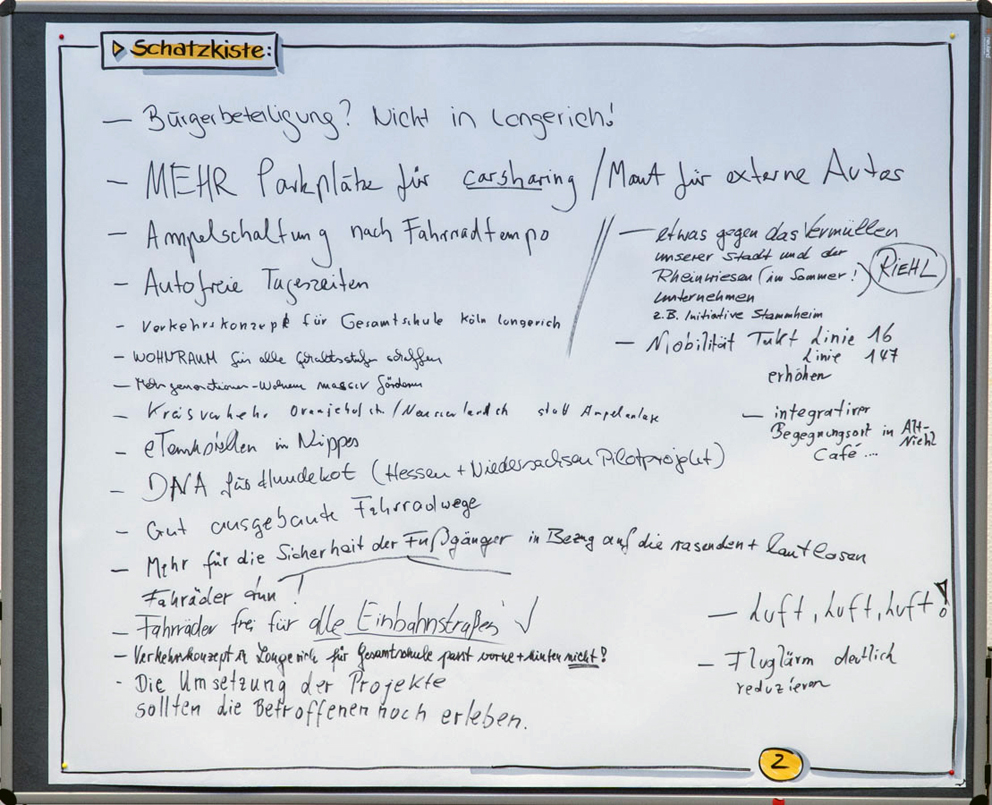 Schatzkiste:
— Bürgerbeteiligung? Nicht in Longerich!
— MEHR Parkplätze für carsharing / Maut für externe Autos
— Ampelschaltung nach Fahrradtempo
— Autofreie Tageszeiten
- Verkehrskonzept für Gesamtschule Köln Longerich
- WOHNRAUM für alle Gehaltsstufen schaffen
— Mehrgenerationen-Wohnen massiv fördern
- Kreisverkehr Oranjehofstr./Neusser landstr statt Ampelanlage
- eTankstellen in Nippes
- DNA für Hundekot (Hessen + Niedersachsen Pilotprojekt)
- Gut ausgebaute Fahrradwege
— Mehr für die Sicherheit der Fußgänger in Bezug auf die rasenden + lautlosen
Fahräder tun!
— Fahrräder frei für alle Einbahnstraßen ✓
- Verkehrskonzept in Longerich für Gesamtschule passt vorne + hinten nicht!
- Die Umsetzung der Projekte
sollten die Betroffenen noch erleben.
— etwas gegen das Vermüllen
unserer Stadt und der
Rheinwiesen (im Sommer!) RIEHL
Unternehmen
z.B. Initiative Stammheim
— Mobilität Takt Linie 16
Linie 147
erhöhen
— integrativer
Begegnungsort in Alt-
Niehl
Café...
— Luft, Luft, Luft!
— Fluglärm deutlich
reduzieren
2